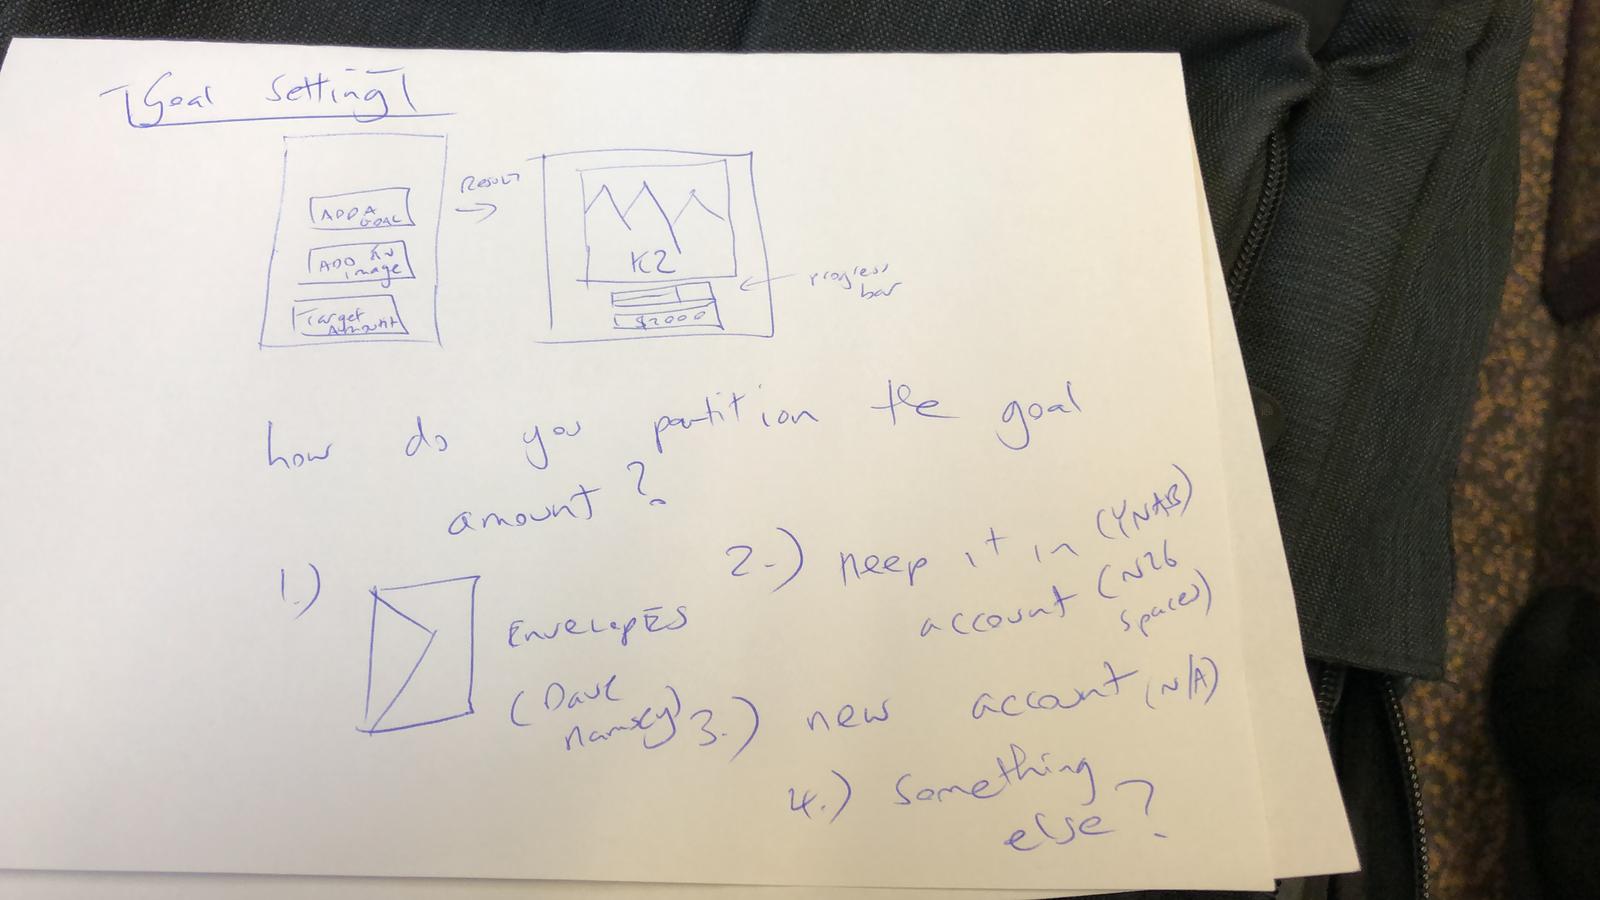 Goal Setting
ADD A
GOAL
ADD AN
image
Target
Amount
Result
K2
$2000
progress
bar
how do you partition the goal
amount?
1.)
EnvelopES
(Dave
Ramsey)
2.) keep it in (YNAB)
account (N26
spaces)
3.) new account (N/A)
4.) Something
else?